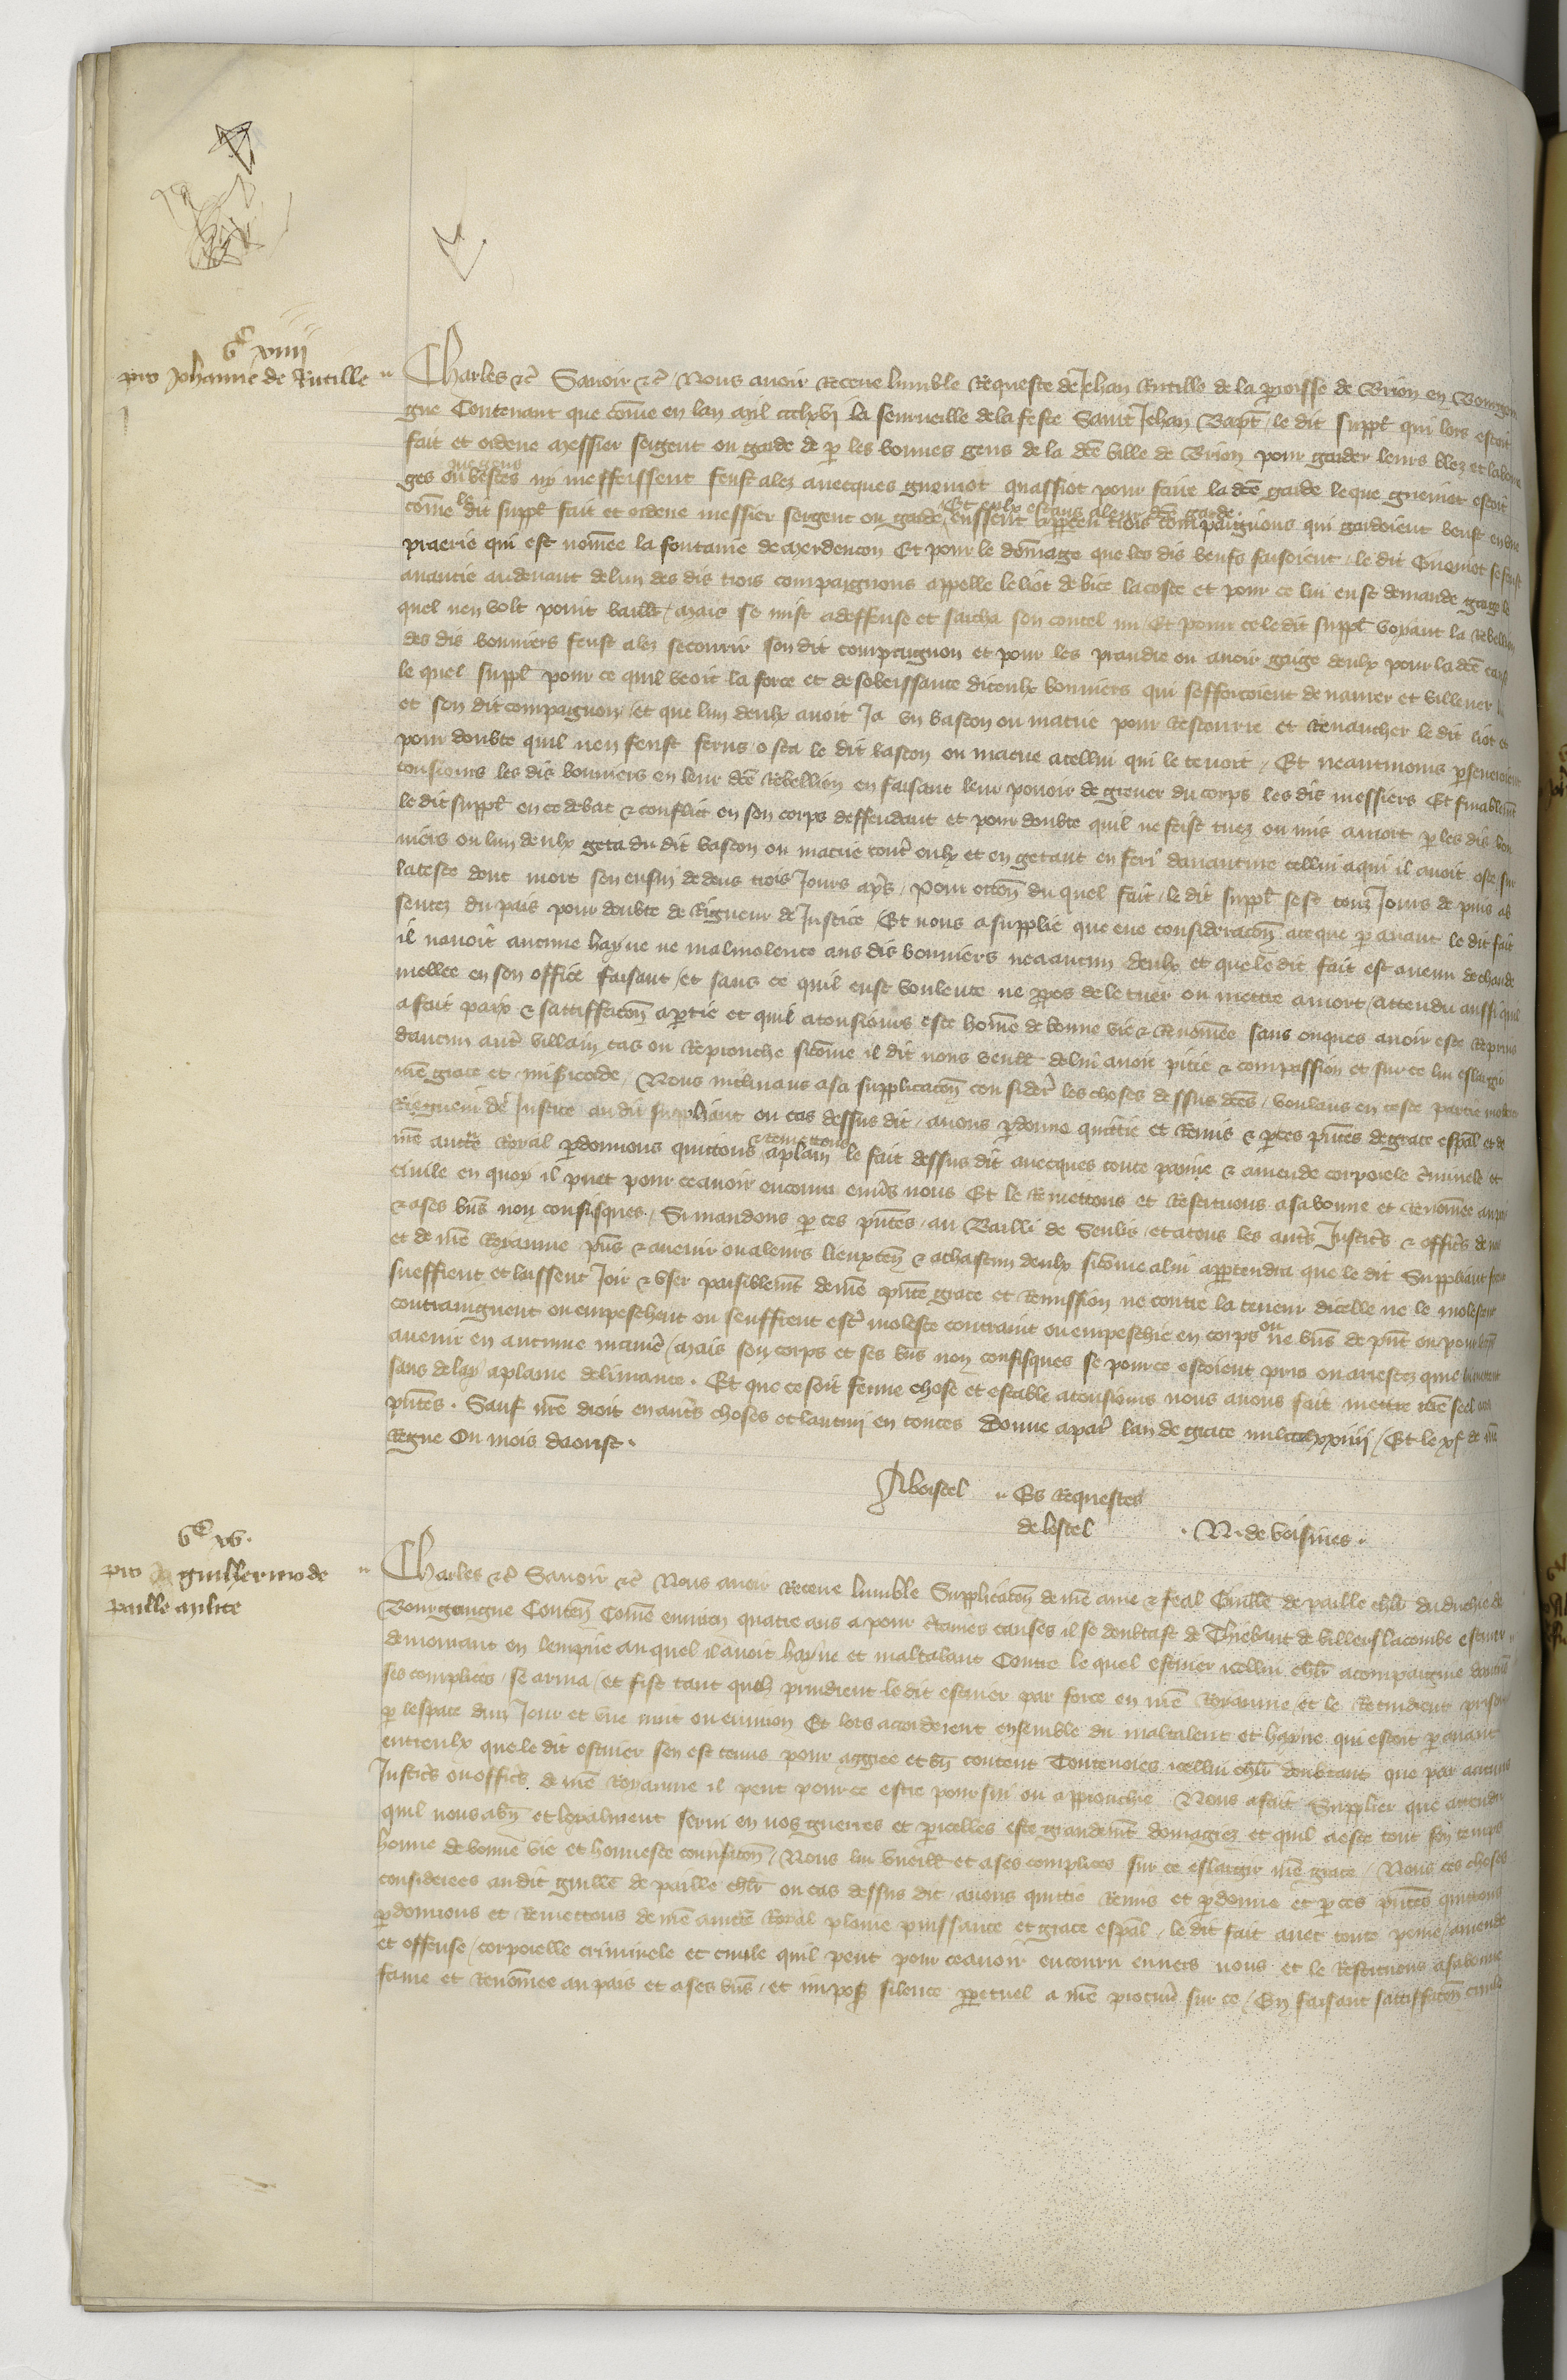 vᶜ xiiii
pro Johanne de Rutille
Charles etc̃ Savoir etc̃ Nous avoir Receue lumble Requeste de Jehan Rutille de la parroisse de Brion en Bourgon
gne Contenant que cõme en lan mil ccclxvi la seurveille de la feste Saint Jehan Bapt̃ le dit suppl̃ qui lors estoit
fait et ordene messier sergent ou garde de p les bonnes gens de la dc̃e ville de Brion pour garder leurs blez et labou
aucuns
ges ou bestes ny meffeissent feust alez avecques guemot quassiot pour faire la dc̃e garde le que guemot estoit
le Et eulx estans a leur dc̃e garde
cõme dit suppl̃ fait et ordene messier sergent ou garde eussent trois compaignons qui gardoient beufs en une
praerie qui est nom̃ee la fontaine de merdencon Et pour le dom̃age que les dis beufs faisoient le dit Guemot se feust
avancie au devant de lun des dis trois compaignons appelle le liot de bice lacoste et pour ce lui eust demande gaige le
quel nen volt point baill̃ mais se mist a deffense et sacha son coutel nu Et pour ce le dit suppl̃ voyant la rebellion
des dis bouviers feust alez secourir son dit compaignon et pour les prandre ou avoir gaige deulx pour la dc̃e cause
le quel suppl̃ pour ce quil veoit la force et desobeissance diceulx bouviers qui sefforcoient de navrer et villener
et son dit compaignon et que lun deulx avoit Ja un baston ou macue pour Rescourre et Revancher le dit liot et
pour doubte quil nen feust ferus osta le dit baston ou macue a cellui qui le tenoit Et neantmoins pseveroient
tousiours les dis bouviers en leur dc̃e Rebellion en faisant leur povoir de grever du corps les dis messiers Et finablem̃t
le dit suppl̃ en ce debat & conflict en son corps deffendant et pour doubte quil ne feist tuez ou mis a mort p les dis bou
viers ou lun deulx geta du dit baston ou macue contr̃ eulx et en getant en feri davanture cellui a qui il avoit oste sur
la teste dont mort sen ensui dedens trois Jours apr̃s Pour occon̄ du quel fait le dit suppl̃ sest touz Jours de puis ab
sentez du pais pour doubte de Rigueur de Justice Et nous a supplie que eue consideracon̄ a ce que p avant le dit fait
il navoit aucune hayne ne malivolence aus dis bouviers ne a aucun deulx et que le dit fait est avenu de chaude
mellee en son office faisant et sans ce quil eust voulente ne ppos de le tuer ou mettre a mort attendu aussi quil
a fait paix & satiffacon̄ a ptie et quil a tousiours este hom̃e de bonne vie & Renom̃ee sans onques avoir este Reprins
daucun autr̃ villain cas ou Reprouche sicõme il dit nous veuill̃ de lui avoir pitie & compassion et sur ce lui eslargir
nr̃e grace et misericorde Nous inclinans a sa supplicacon̄ consider̃ les choses dessus dc̃es voulans en ceste partie
Riegueur de Justice au dit suppliant ou cas dessus dit avons pdonne quittie et Remis & p ces pñtes de grace esp̃al et de
& remettons
nr̃e auct̃e Roial pdonnons quittons a plain le fait dessus dit avecques toute paine & amende corporele criminele et
civile en quoy il puet pour ce avoir encouru env̄s nous Et le Remettons et Restituons a sa bonne et Renom̃ee au pais
& a ses biẽs non confisques Si mandons p ces pñtes au Bailli de Senliz et a tous les autr̃s Justic̃s & offic̃s de nous
et de nr̃e Royaume pñs & avenir ou a leurs lieuxten̄ & a chascun deulx sicõme a lui appartendra que le dit Suppliant facent
sueffrent et laissent Joir & user paisiblem̃t de nr̃e pñte grace et Remission ne contre la teneur dicelle ne le molestent
contraingnent ou empeschent ou seuffrent estr̃ moleste contraint ou empeschie en corps ou ne biẽs de pñt ou pour le tẽps
avenir en aucune manier̃ mais son corps et ses biẽs non confisques se pour ce estoient pris ou arrestez
sans delay a plaine delivrance. Et que ce soit ferme chose et estable a tousiours nous avons fait mettre nr̃e seel a ces
pñtes. Sauf nr̃e droit en autr̃s choses et lautruy en toutes Donne a par̃ lan de grace mil ccclxxiiii Et le xj de nr̃e
Regne Ou mois daoust.
Aboistel Es Requestes
de lostel . N. de voisines .
vᶜ xv.
pro guillermo de
paille milite
Charles etc̃ Savoir etc̃ Nous avoir Receue lumble Supplicacon̄ de nr̃e ame & feal Guill̃e de paille chl̃r du duchie de
Bourgoingne Conten̄ Cõme environ quatre ans a pour c̃taines causes il se doubtast de Thiebaut de villers lacombe escuier
demourant en lempire au quel il avoit hayne et maltalant Contre le quel escuier icellui chl̃r acompaigne daucuns
ses complices se arma et fist tant quilz prindrent le dit escuier par force en nr̃e Royaume et le Retindrent prison
p lespace dun Jour et une nuit ou environ Et lors accorderent ensemble du maltalent et hayne qui estoit p avant
entreulx que le dit escuier sen est tenus pour aggree et biẽ content Toutevoies icellui chl̃r doubtant que par aucuns
Justic̃s ou offic̃s de nr̃e Royaume il peut pour ce estre poursui ou approuchie Nous a fait Supplier que attendu
quil nous a biẽ et loyalment servi en nos guerres et p icelles este grandem̃t domagiez et quil a este tout son temps
hom̃e de bonne vie et honneste conv̄sacon̄ Nous lui vueill̃ et a ses complices sur ce eslargir nr̃e grace Nous ces choses
considerees au dit guill̃e de paille chl̃r ou cas dessus dit avons quittie Remis et pdonne et p ces pñtes quittons
pdonnons et Remettons de nr̃e auct̃e Roial plaine puissance et grace esp̃al le dit fait avec toute peine amende
et offense corporelle criminele et civile quil peut pour ce avoir encouru envers nous et le Restituons a sa bonne
fame et Renom̃ee au pais et a ses biẽs et impos̃ silence ppetuel a nr̃e procur̃ sur ce En faisant satiffacon̄ civile